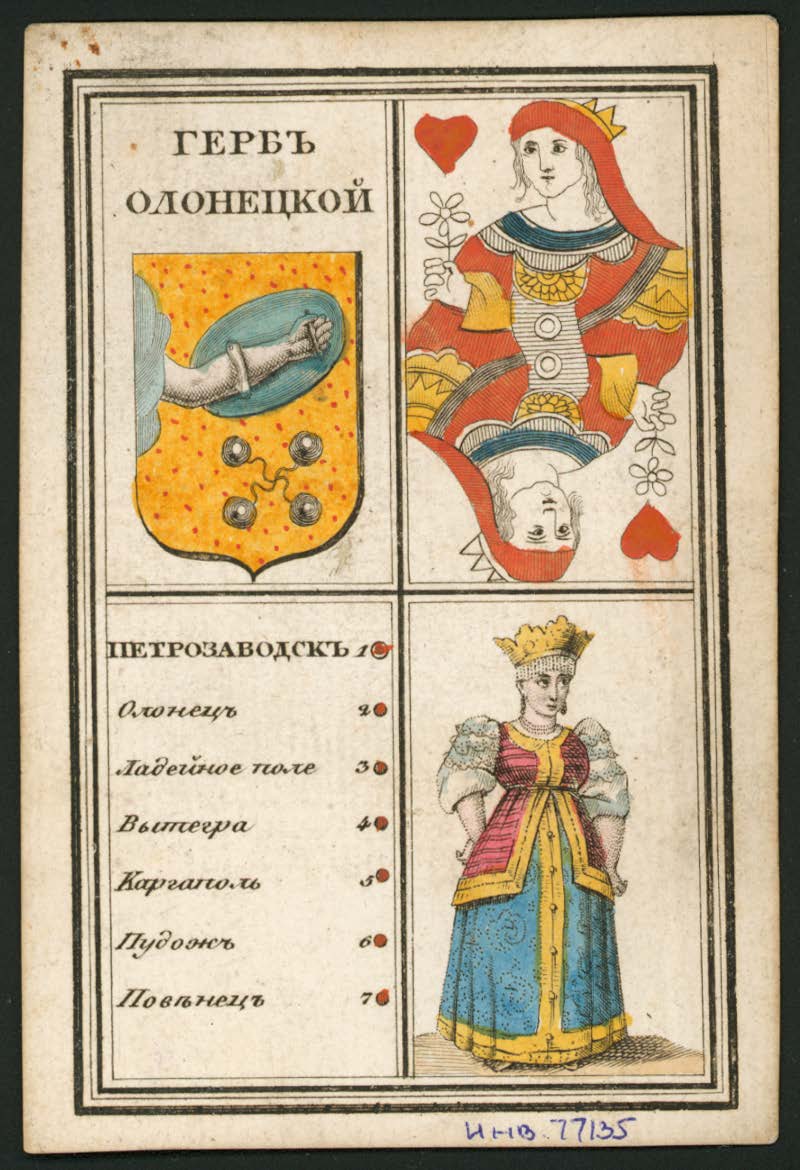 ГЕРБЪ
ОЛОНЕЦКОЙ
ПЕТРОЗАВОДСКЪ 1
Олонецъ 2
Ладейное поле 3
Вытегра 4
Каргаполь 5
Пудожъ 6
Повѣнецъ 7
ИНВ. 77135